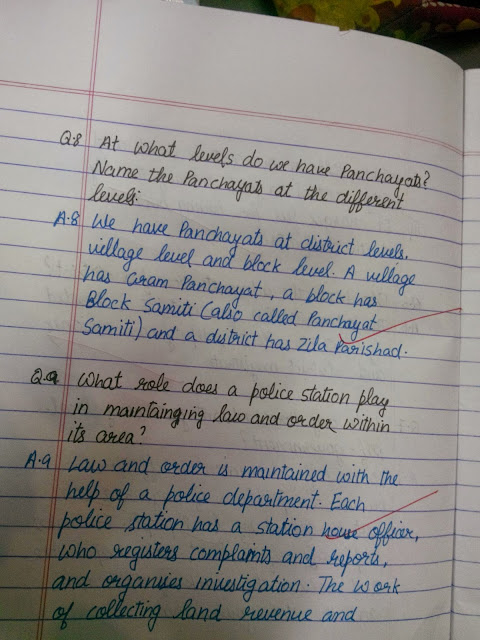 Q.8 At what levels do we have Panchayats?
Name the Panchayats at the different
levels.
A.8 We have Panchayats at district levels,
village level and block level. A village
has Gram Panchayat, a block has
Block Samiti (also called Panchayat
Samiti) and a district has Zila Parishad.
Q.9 What role does a police station play
in maintainging law and order within
its area?
A.9 Law and order is maintained with the
help of a police department. Each
police station has a station house officer,
who registers complaints and reports,
and organises investigation. The work
of collecting land revenue and